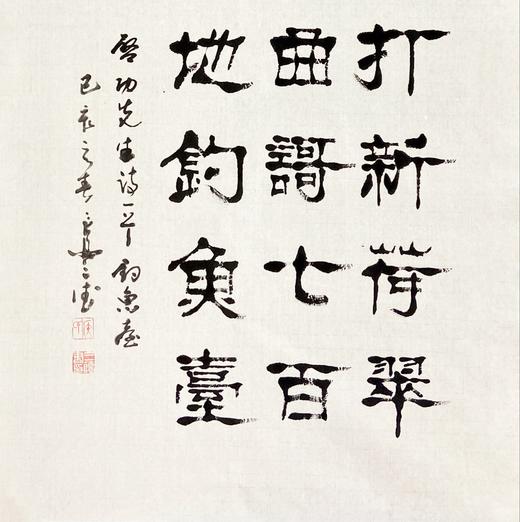 打新荷翠
曲謌七百
地釣魚臺
啓功先生詩一首 釣魚臺
己亥之春